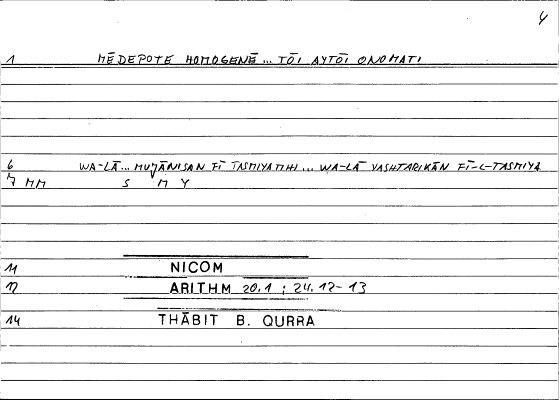 4
1 MĒDEPOTE HOMOGENĒ... TŌI AYTŌI ONOMATI
6 WA-LĀ... MUJĀNISAN FĪ TASMIYATIHI... WA-LĀ YASHTARIKĀN FĪ-L-TASMIYA
7 MM S M Y
11 NICOM
12 ARITHM 20.1 ; 24.12-13
14 THĀBIT B. QURRA